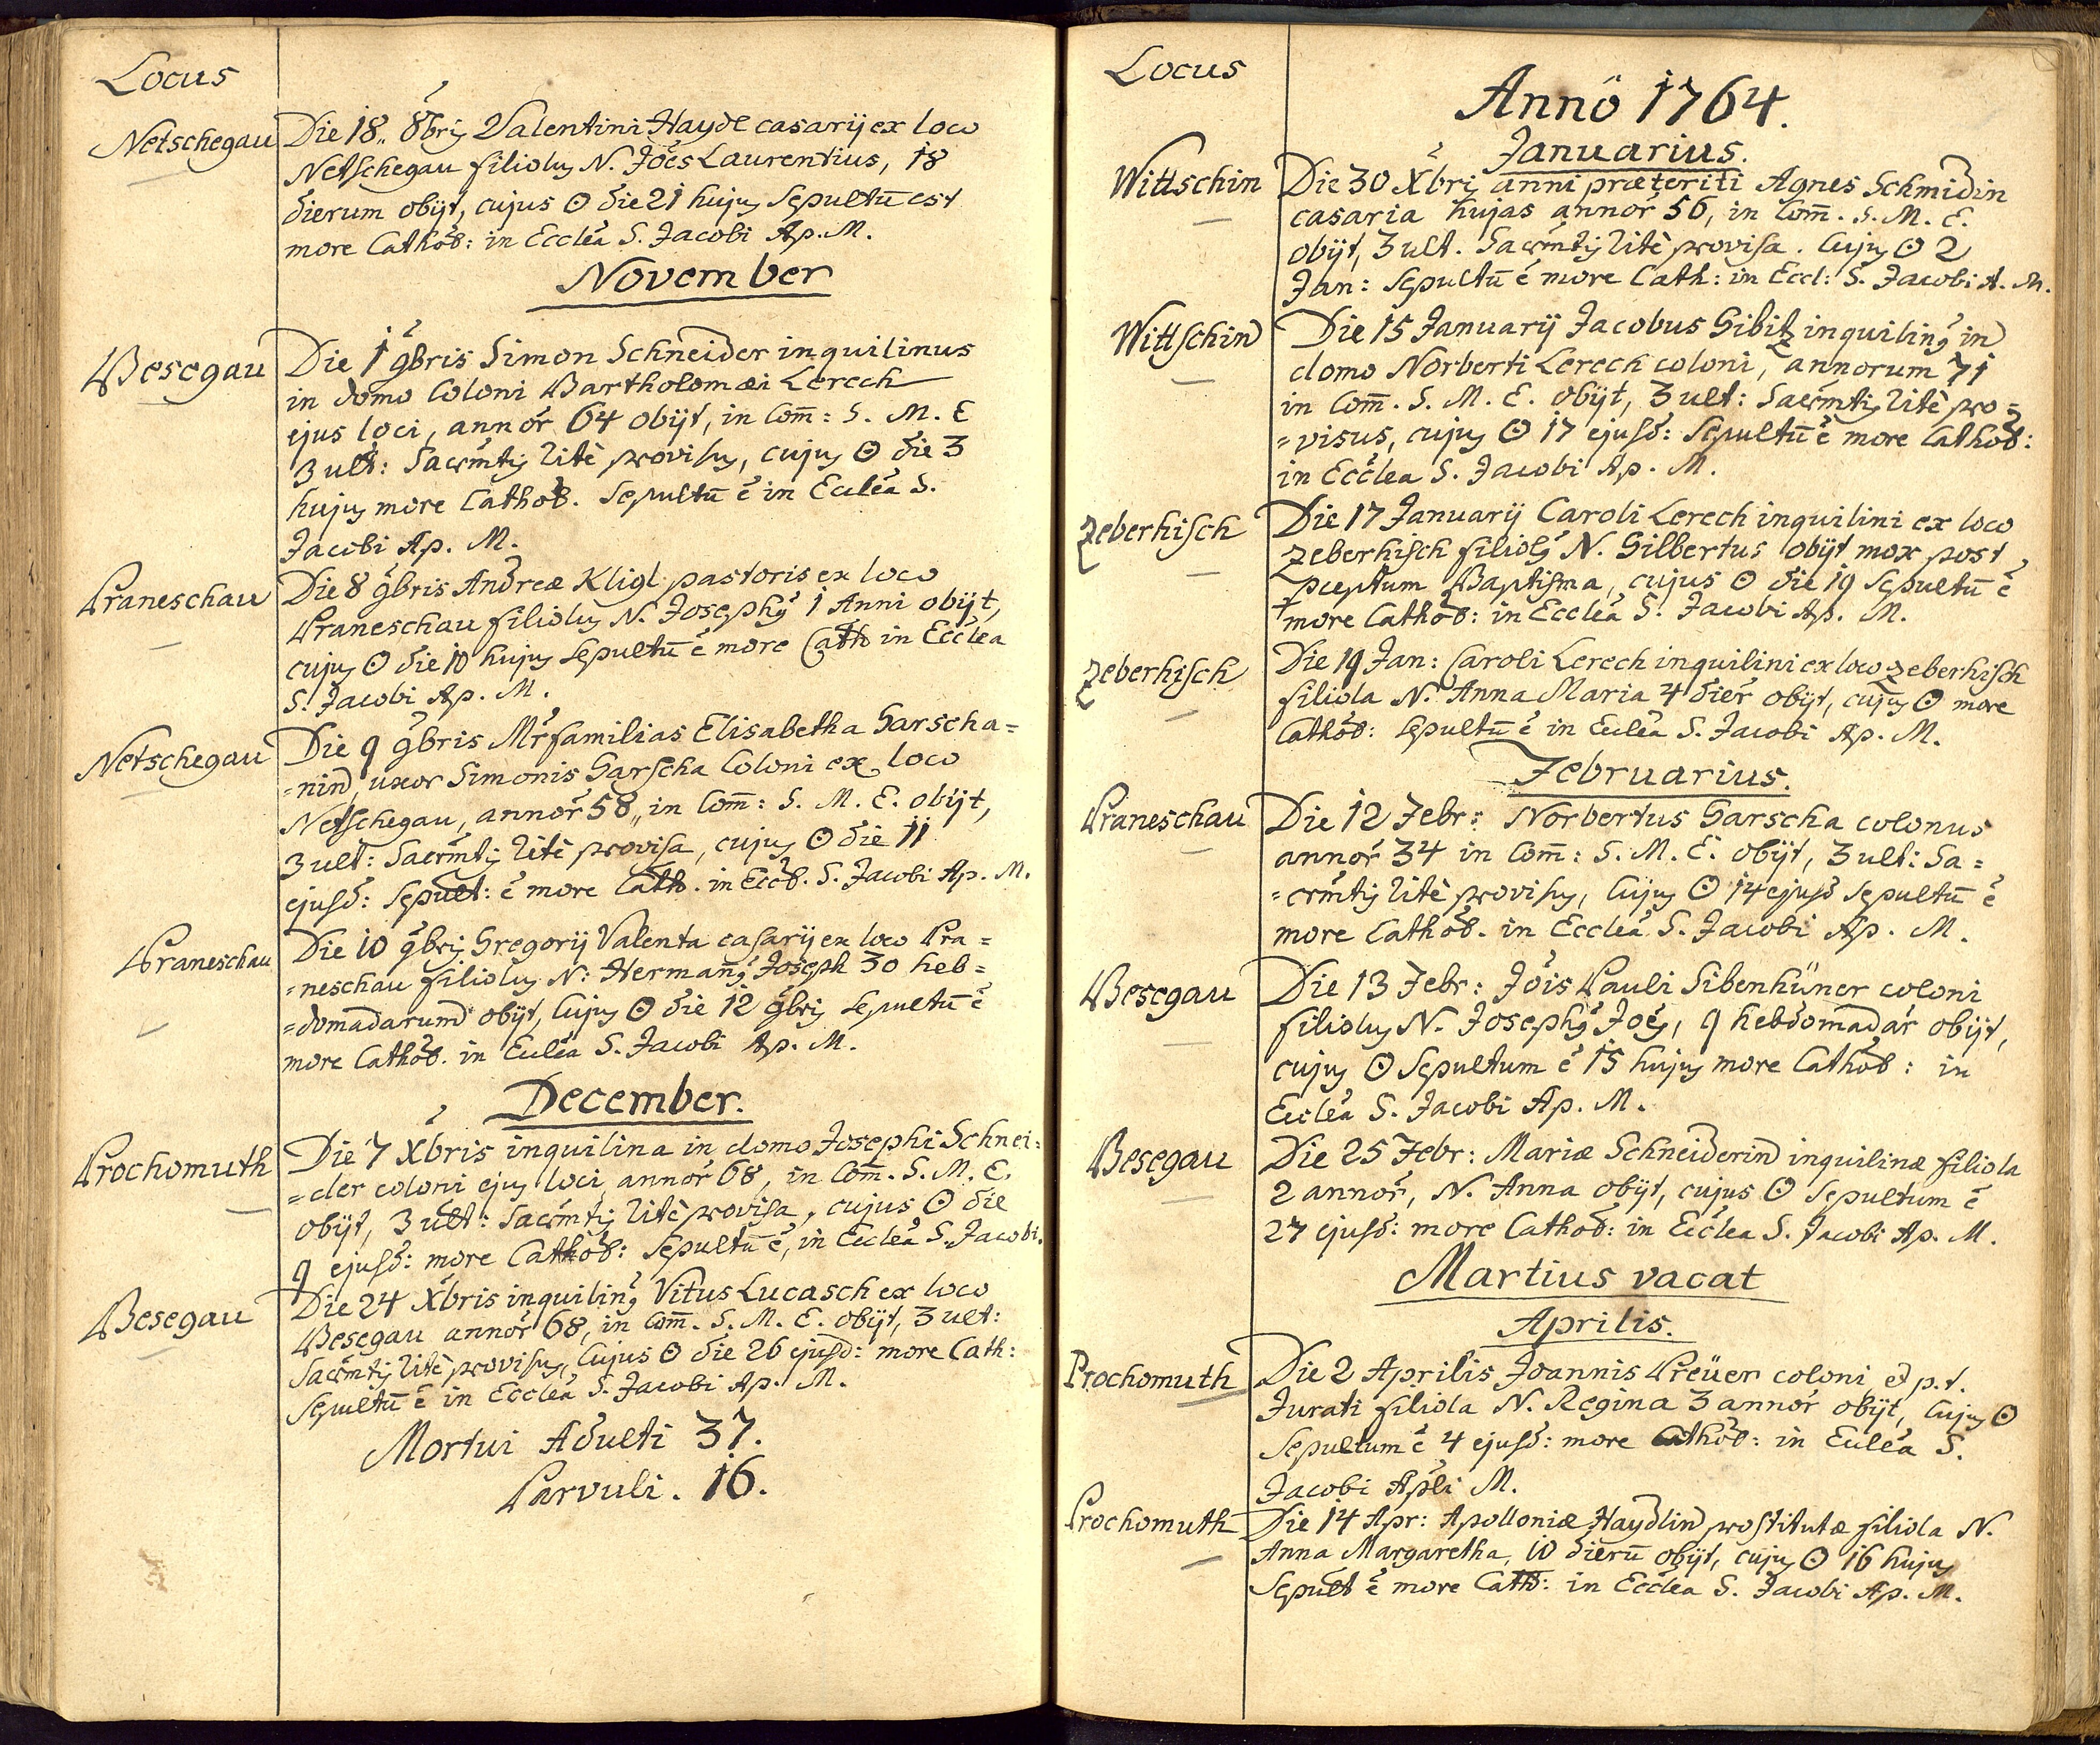 Locus
Netschegau
Die 18. 8bris Valentini Hayde casarij ex loco
Netschegau filiolus N. Joes Laurentius, 18
dierum obijt, cujus ʘ die 21 hujus sepultū est
more Cathol: in Ecclea S. Jacobi Ap. M.
November
Besegau
Die 1 9bris Simon Schneider inquilinus
in domo Coloni Bartholomæi Lerech
ejus loci, annor 64 obijt, in Com̄: S. M. E
3 ult: Sacrmtis ritè provisus, cujus ʘ die 3
hujus more Cathol. sepultū ē in Ecclea S.
Jacobi Ap. M.
Praneschau
Die 8 9bris Andreæ Kligl pastoris ex loco
Praneschau filiolus N. Josephus 1 Anni obijt,
cujus ʘ die 10 hujus sepultū ē more Cath in Ecclea
S. Jacobi Ap. M.
Netschegau
Die 9 9bris Mrfamilias Elisabetha Garscha=
=nin, uxor Simonis Garscha Coloni ex loco
Netschegau, annor 58, in Com̄: S. M. E. obijt,
3 ult: Sacrmtis ritè provisa, cujus ʘ die 11
ejusd: sepult: ē more Cath. in Eccl. S. Jacobi Ap. M.
Praneschau
Die 10 9bris Gregorij Valenta casarij ex loco Pra=
=neschau filiolus N: Hermanus Joseph 30 heb=
=domadarum obijt, Cujus ʘ die 12 9bris sepultū ē
more Cathol. in Ecclea S. Jacobi Ap. M.
December.
Prochomuth
Die 7 Xbris inquilina in domo Josephi Schnei=
=der coloni ejus loci annor 68, in Com̄. S. M. E.
obijt, 3 ult: Sacrmtis ritè provisa, cujus ʘ die
9 ejusd: more Cathol: Sepultū ē, in Ecclea S. Jacobi.
Besegau
Die 24 Xbris inquilinus Vitus Lucasch ex loco
Besegau annor 68, in Com̄. S. M. E. obijt, 3 ult:
Sacrmtis ritè provisus, Cujus ʘ die 26 ejusd: more Cath:
Sepultū ē in Ecclea S. Jacobi Ap. M.
Mortui Adulti 37.
Parvuli. 16.
Locus
Annô 1764.
Januarius.
Wittschin
Die 30 Xbris anni præteriti Agnes Schmidin
casaria hujas annor 56, in Com̄. S. M. E.
obijt, 3 ult. Sacrmtis ritè provisa. Cujus ʘ 2
Jan: sepultū ē more Cath: in Eccl: S. Jacobi A. M.
Wittschin
Die 15 Januarij Jacobus Gibitz inquilinus in
domo Norberti Lerech coloni, annorum 71
in Com̄. S. M. E. obijt, 3 ult: Sacrmtis ritè pro=
=visus, cujus ʘ 17 ejusd: Sepultū ē more Cathol:
in Ecclea S. Jacobi Ap. M.
Zeberhisch
Die 17 Januarij Caroli Lerech inquilini ex loco
Zeberhisch filiolus N. Gilbertus obijt mox post
pceptum Baptisma, cujus ʘ die 19 sepultū ē
more Cathol: in Ecclea S. Jacobi Ap. M.
Zeberhisch
Die 19 Jan: Caroli Lerech inquilini ex loco Zeberhisch
filiola N. Anna Maria 4 dier obijt, cujus ʘ more
Cathol: sepultū ē in Ecclea S. Jacobi Ap. M.
Februarius.
Praneschau
Die 12 Febr: Norbertus Garscha colonus
annor 34 in Com̄: S. M. E. obijt, 3 ult: Sa=
=crmtis ritè provisus, Cujus ʘ 14 ejusd sepultū ē
more Cathol. in Ecclea S. Jacobi Ap. M.
Besegau
Die 13 Febr: Jois Pauli Sibenhüner coloni
filiolus N. Josephus Joes, 9 hebdomadar obijt,
cujus ʘ Sepultum ē 15 hujus more Cathol: in
Ecclea S. Jacobi Ap. M.
Besegau
Die 25 Febr: Mariæ Schneiderin inquilinæ filiola
2 annor, N. Anna obijt, cujus ʘ sepultum ē
27 ejusd: more Cathol: in Ecclea S. Jacobi Ap. M.
Martius vacat
Aprilis.
Prochomuth
Die 2 Aprilis Joannis Preüer coloni et p. t.
Jurati filiola N. Regina 3 annor obijt, Cujus ʘ
Sepultum ē 4 ejusd: more Cathol: in Ecclea S.
Jacobi Apli M.
Prochomuth
Die 14 Apr: Apolloniæ Haydlin prostitutæ filiola N.
Anna Margaretha, 10 dierū obijt, cujus ʘ 16 hujus
Sepult ē more Cath: in Ecclea S. Jacobi Ap. M.